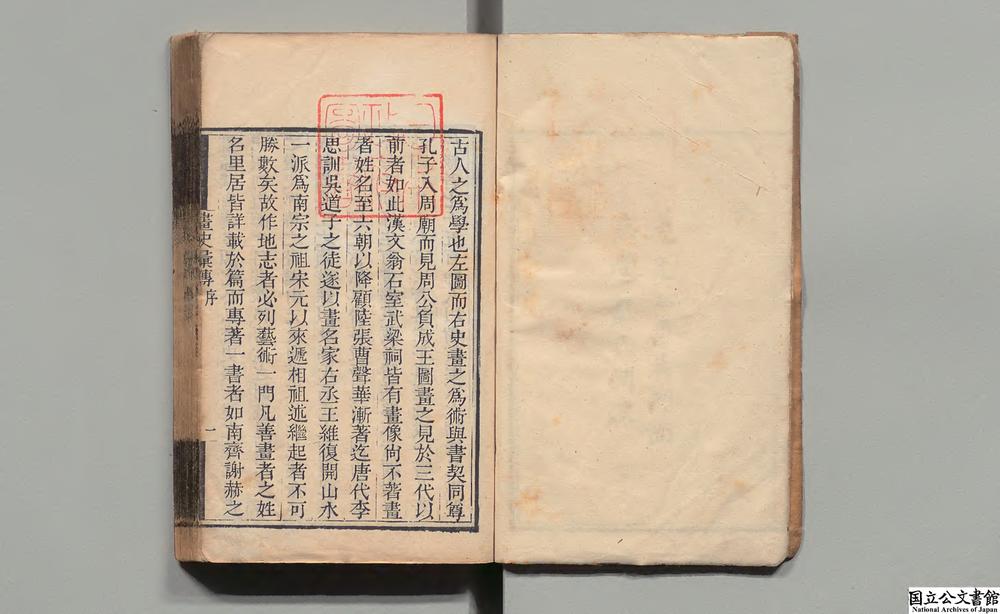 古人之爲學也左圖而右史畫之爲術與書契同尊
孔子入周廟而見周公負成王圖畫之見於三代以
前者如此漢文翁石室武梁祠皆有畫像尙不著畫
者姓名至六朝以降顧陸張曹聲華漸著迄唐代李
思訓吳道子之徒遂以畫名家右丞王維復開山水
一派爲南宗之祖宋元以來遞相祖述繼起者不可
勝數矣故作地志者必列藝術一門凡善畫者之姓
名里居皆詳載於篇而專著一書者如南齊謝赫之
畫史彙傳
序
一
国立公文書館
National Archives of Japan